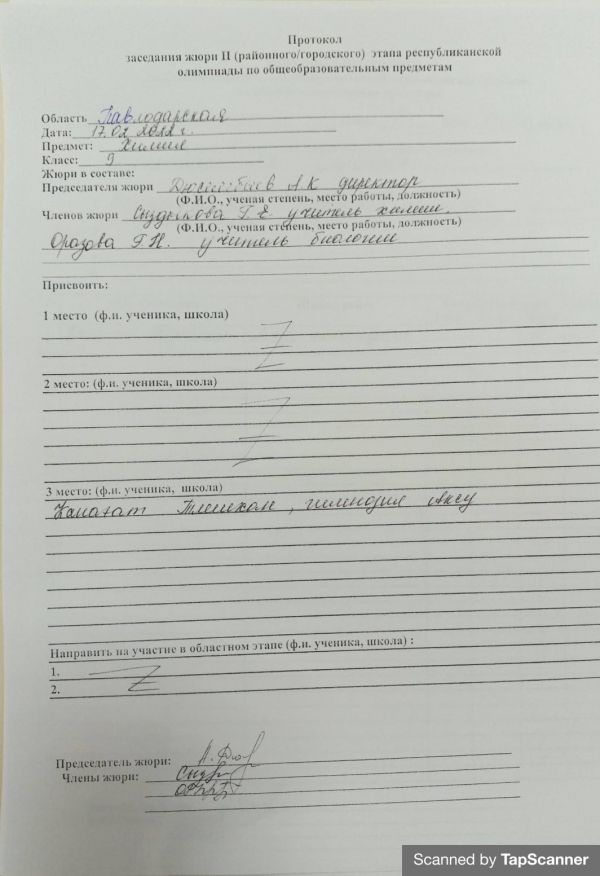 Протокол
заседания жюри II (районного/городского) этапа республиканской
олимпиады по общеобразовательным предметам
Область Павлодарская
Дата: 17.02 2022 г.
Предмет: Химия
Класс: 9
Жюри в составе:
Председателя жюри А К директор
(Ф.И.О., ученая степень, место работы, должность)
Членов жюри Сыздыкова Г. Е. учитель химии,
(Ф.И.О., ученая степень, место работы, должность)
Оразова Г.Н. учитель биологии
Присвоить:
1 место (ф.и. ученика, школа)
2 место: (ф.и. ученика, школа)
3 место: (ф.и. ученика, школа)
гимназия Аксу
Направить на участие в областном этапе (ф.и. ученика, школа) :
1.
2.
Председатель жюри:
Члены жюри:
Scanned by TapScanner